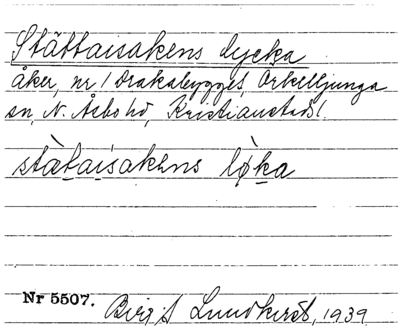 Stättaisakens lycka
åker, nr 1 Drakabygget, Örkelljunga
sn, N. Åsbo hd, Kristianstads l.
stätaisakens løka
Nr 5507. Birgit Lundkvist, 1939